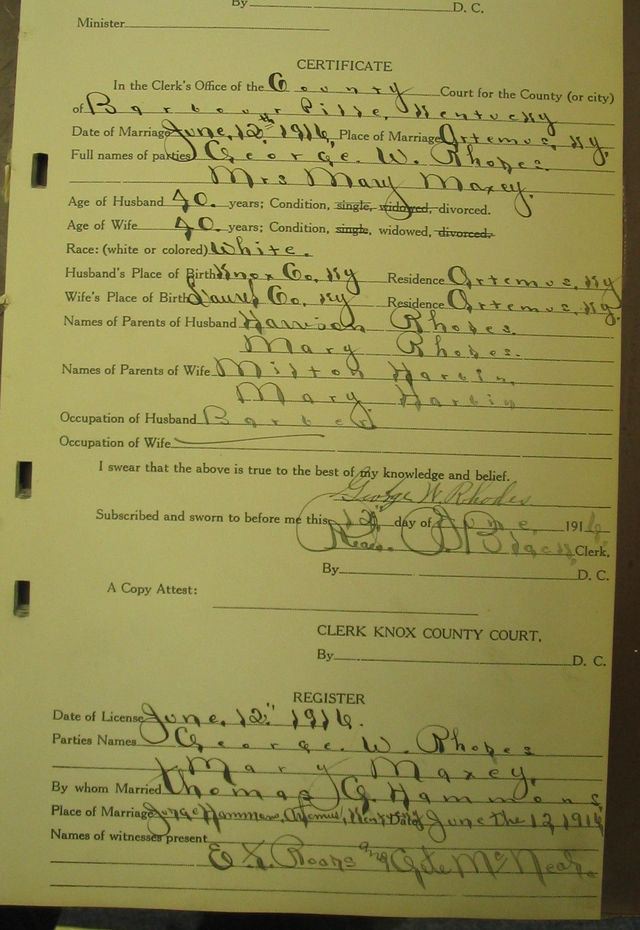 By D. C.
Minister
CERTIFICATE
In the Clerk's Office of the County Court for the County (or city)
of Barbourville, Kentucky
Date of Marriage June, 12th 1916, Place of Marriage Artemus, Ky,
Full names of parties George. W. Rhodes.
Mrs Mary Maxey.
Age of Husband 40. years; Condition, single, widowed, divorced.
Age of Wife 40. years; Condition, single, widowed, divorced.
Race: (white or colored) White.
Husband's Place of Birth Knox Co, Ky Residence Artemus, Ky
Wife's Place of Birth Laurel Co, Ky Residence Artemus, Ky.
Names of Parents of Husband Harrison Rhodes.
Mary Rhodes.
Names of Parents of Wife Milton Harbin,
Mary Harbin
Occupation of Husband Barber
Occupation of Wife
I swear that the above is true to the best of my knowledge and belief.
George W. Rhodes
Subscribed and sworn to before me this 12" day of June, 1916
Read Clerk.
By D. C.
A Copy Attest:
CLERK KNOX COUNTY COURT.
By D. C.
REGISTER
Date of License June, 12." 1916.
Parties Names George. W. Rhodes
Mary Maxey,
By whom Married Thomas G. Hammons,
Place of Marriage Hammons, Artemus, Kentucky Date June the 12, 1916
Names of witnesses present
E. L. and McNeal.